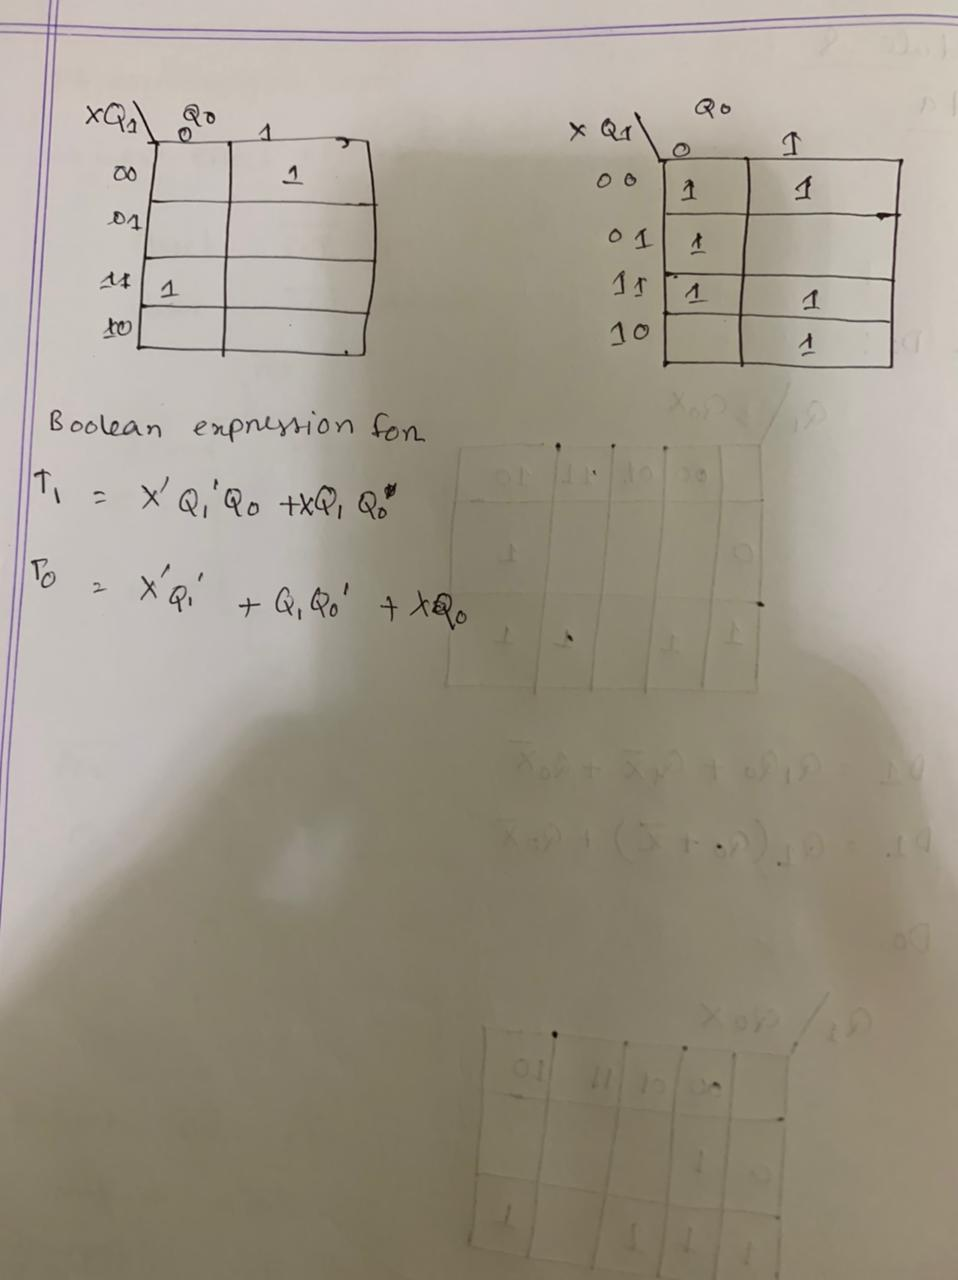 XQ1\ Q0
0 1
00 1
01
11 1
10
X Q1\ Q0
0 1
00 1 1
01 1
11 1 1
10 1
Boolean expression for
T1 = X'Q1'Q0 + XQ1 Q0'
T0 = X'Q1' + Q1Q0' + XQ0